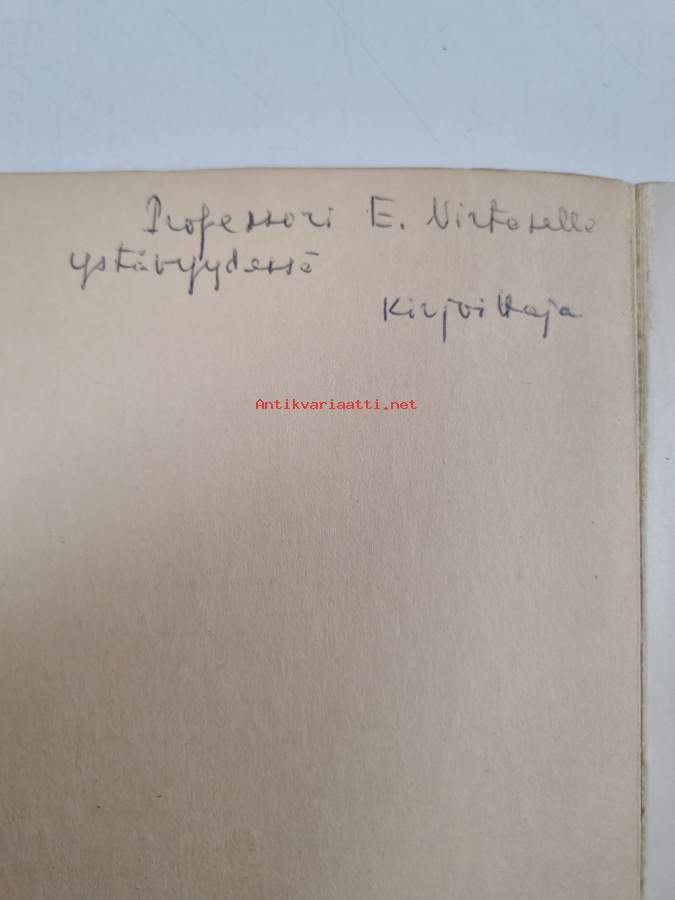 Professori E. Virtaselle
ystävyydessä
Kirjoittaja
Antikvariaatti.net